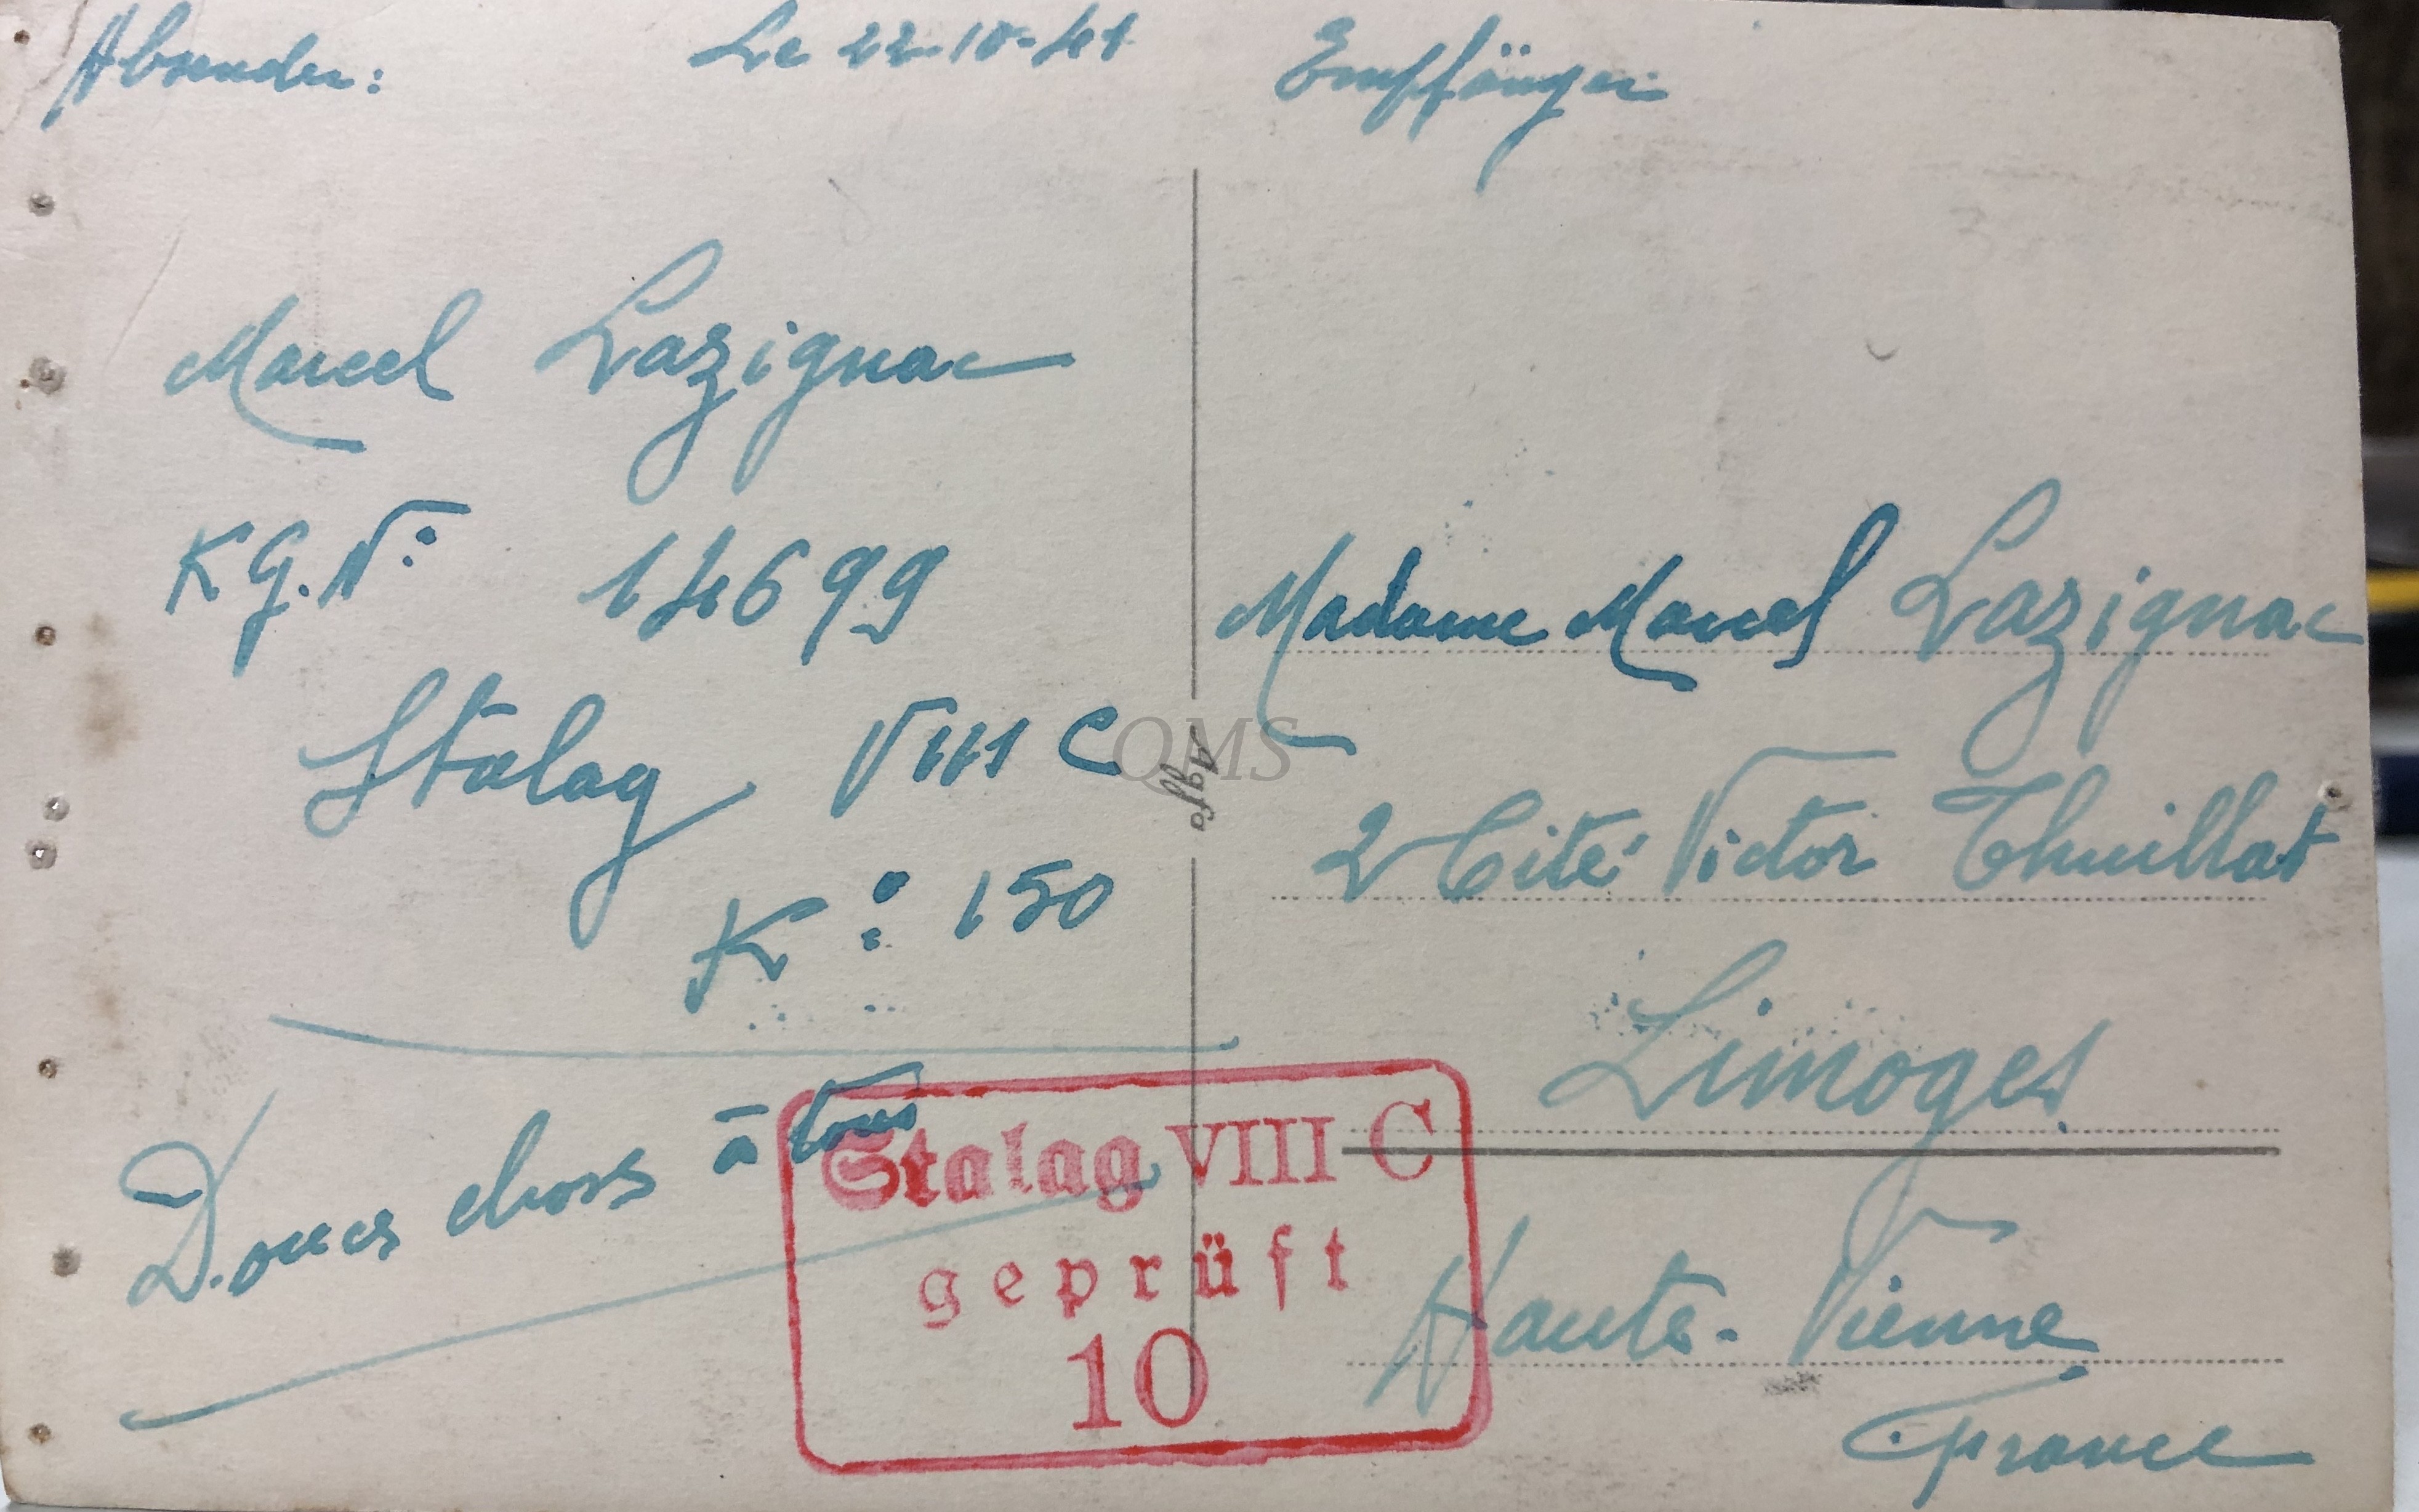 Absender:
Le 22-10-41
Marcel Lazignac
KG. N° 14699
Stalag VIII C
K° 150
Douces choses à tous
Empfänger
Madame Marcel Lazignac
2 Cité Victor Thuillat
Limoges
Haute-Vienne
France
Agfa
QMS
Stalag VIII C
geprüft
10